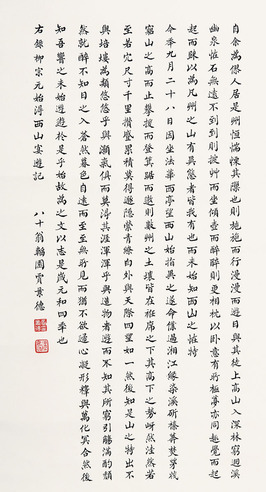 自余為僇人居是州恒惴慄其隟也則施施而行漫漫而遊日與其徒上高山入深林窮迴溪
幽泉怪石無遠不到到則披艸而坐傾壺而醉醉則更相枕以臥意有所極夢亦同趣覺而起
起而歸以為凡州之山有異態者皆我有也而未始知西山之怪特
今年九月二十八日因坐法華西亭望西山始指異之遂命僕過湘江緣染溪斫榛莽焚茅茷
窮山之高而止攀援而登箕踞而遨則數州之土壤皆在衽席之下其高下之勢岈然洼然若
垤若穴尺寸千里攢蹙累積莫得遯隱縈青繚白外與天際四望如一然後知是山之特出不
與培塿為類悠悠乎與灝氣俱而莫得其涯洋洋乎與造物者遊而不知其所窮引觴滿酌頹
然就醉不知日之入蒼然暮色自遠而至至無所見而猶不欲歸心凝形釋與萬化冥合然後
知吾嚮之未始遊遊於是乎始故為之文以志是歲元和四年也
右錄柳宗元始得西山宴遊記 八十翁